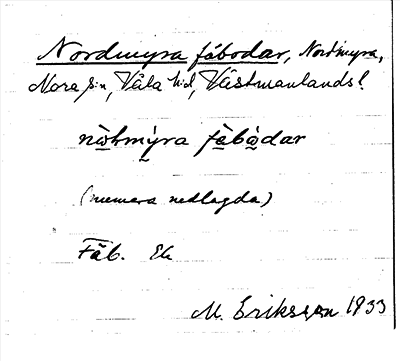 Nordmyra fäbodar, Nordmyra,
Nora sn, Våla hd, Västmanlands l.
nòhmýra fä̀bòdar
(numera nedlagda)
Fäb. Ek
M. Eriksson 1933